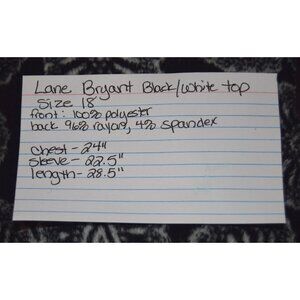 Lane Bryant Black/White top
Size 18
front: 100% polyester
back 96% rayon, 4% spandex
chest - 24"
sleeve - 22.5"
length - 28.5"